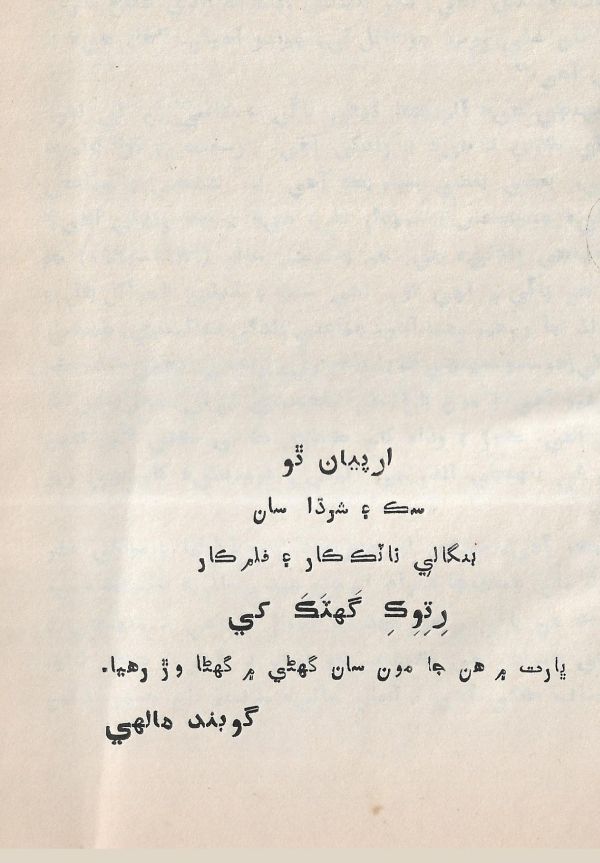 ارپيان ٿو
سڪ ۽ شرڌا سان
بنگالي ناٽڪ ڪار ۽ فلم ڪار
رِتِوِڪِ گَهٽَڪَ کي
ڀارت ۾ هن جا مون سان گهڻي ۾ گهڻا وڙ رهيا.
گوبند مالهي